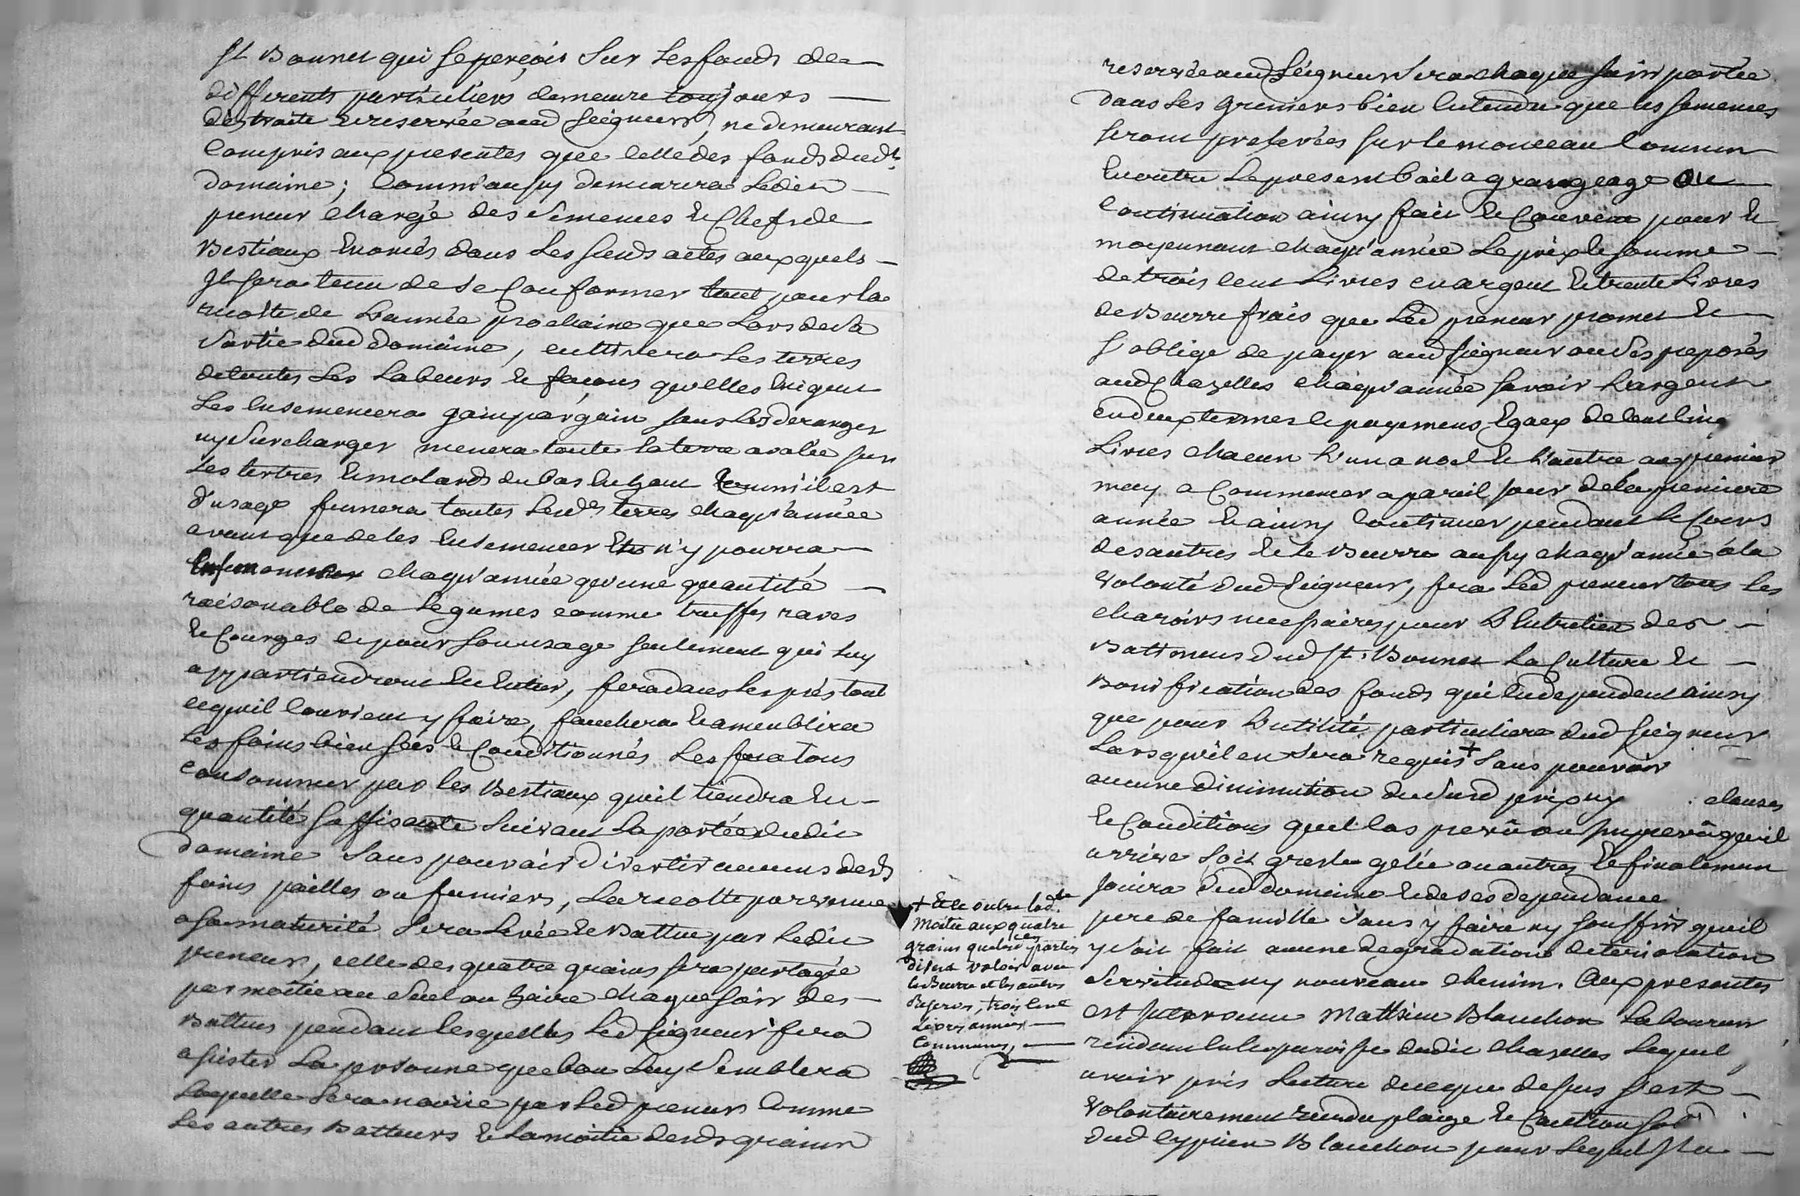 St Bonnet qui se perçois sur les fonds de
differents particuliers demeure toujours
destraite et reservée aud seigneur, ne demeurant
compris aux presentes que celle des fonds dud
domaine; comm'aussy demeurera ledit
preneur chargé des semences et chefs de
Bestiaux enoncés dans les susds actes auxquels
il sera tenu de se conformer tant pour la
recolte de l'année prochaine que lors de la
sortie dud domaine, cultivera les terres
de toutes les labeurs et façons qu'elles exigent
les ensemencera gain par gain sans les deranger
ny surcharger menera toute la terre avalée sur
les tertres et molards du bas en haut comm'il est
d'usage fumera toutes lesds terres chaqu'année
avant que de les ensemencer et n'y pourra
chaqu'année qu'une quantité
raisonable de legumes comme truffes raves
et courges et pour son usage seulement qui luy
appartiendront en entier, fera dans les prés tout
ce qu'il convient y faire, fauchera et ameublira
les foins bien secs et conditionnés les fera tous
consommer par les Bestiaux qu'il tiendra en
quantité suffisante suivant la portée dudit
domaine sans pouvoir divertir aucuns desds
foins pailles ou fumiers, la recolte parvenue
a sa maturité sera levée et battue par ledit
preneur, celle des quatre grains sera partagée
par moitie au suel ou haire chaque soir des
Battus pendant lesquelles led seigneur fera
assister la personne que bon luy semblera
laquelle sera nourrie par led preneur comme
les autres Batteurs et la moitie desds grains
+ Et en outre lad
moitie aux quatre
grains quelles parties
disent valoir avec
le Beurre et les autres
Reserves, trois cent
livres années
communes,
reservée aud seigneur sera chaque soir portée
dans ses greniers bien entendu que les semences
seront prelevées sur le monceau commun
En outre le present bail a grangeage ou
continuation ainsy fait et convenu pour et
moyennant chaqu'année le prix et somme
de trois cent livres en argent et trente livres
de Beurre frais que led preneur promet et
s'oblige de payer aud seigneur ou ses preposés
aud Chazelles chaqu'année savoir l'argent
en deux termes et payemens Egaux de cent cinq
livres chacun l'un a noel et l'autre au premier
may a commencer a pareil jour de la premiere
année et ainsy continuer pendant le cours
des autres et le Beurre aussy chaqu'année a la
volonté dud seigneur, fera led preneur tous les
charois necessaires pour l'entretien des
Battimens dud St. Bonnet la culture et
Bonification des fonds qui en dependent ainsy
que pour l'utilité particuliere dud seigneur
lorsqu'il en sera requis + sans pouvoir
aucune diminution du susd prix ny clauses
et conditions quel cas prevu ou imprevu qu'il
arrive soit gresle gelée ou autres et finalement
jouira dud domaine et de ses dependance
pere de famille sans y faire ny souffrir qu'il
y soit fait aucune degradation deterioration
servitude ny nouveau chemin. Aux presentes
est intervenu Matthieu Blanchon laboureur
residant en la paroisse dudit Chazelles lequel
avoir pris lecture de ce que dessus s'est
volontairement rendu plaige et caution
dud cyprien Blanchon pour lequel il a